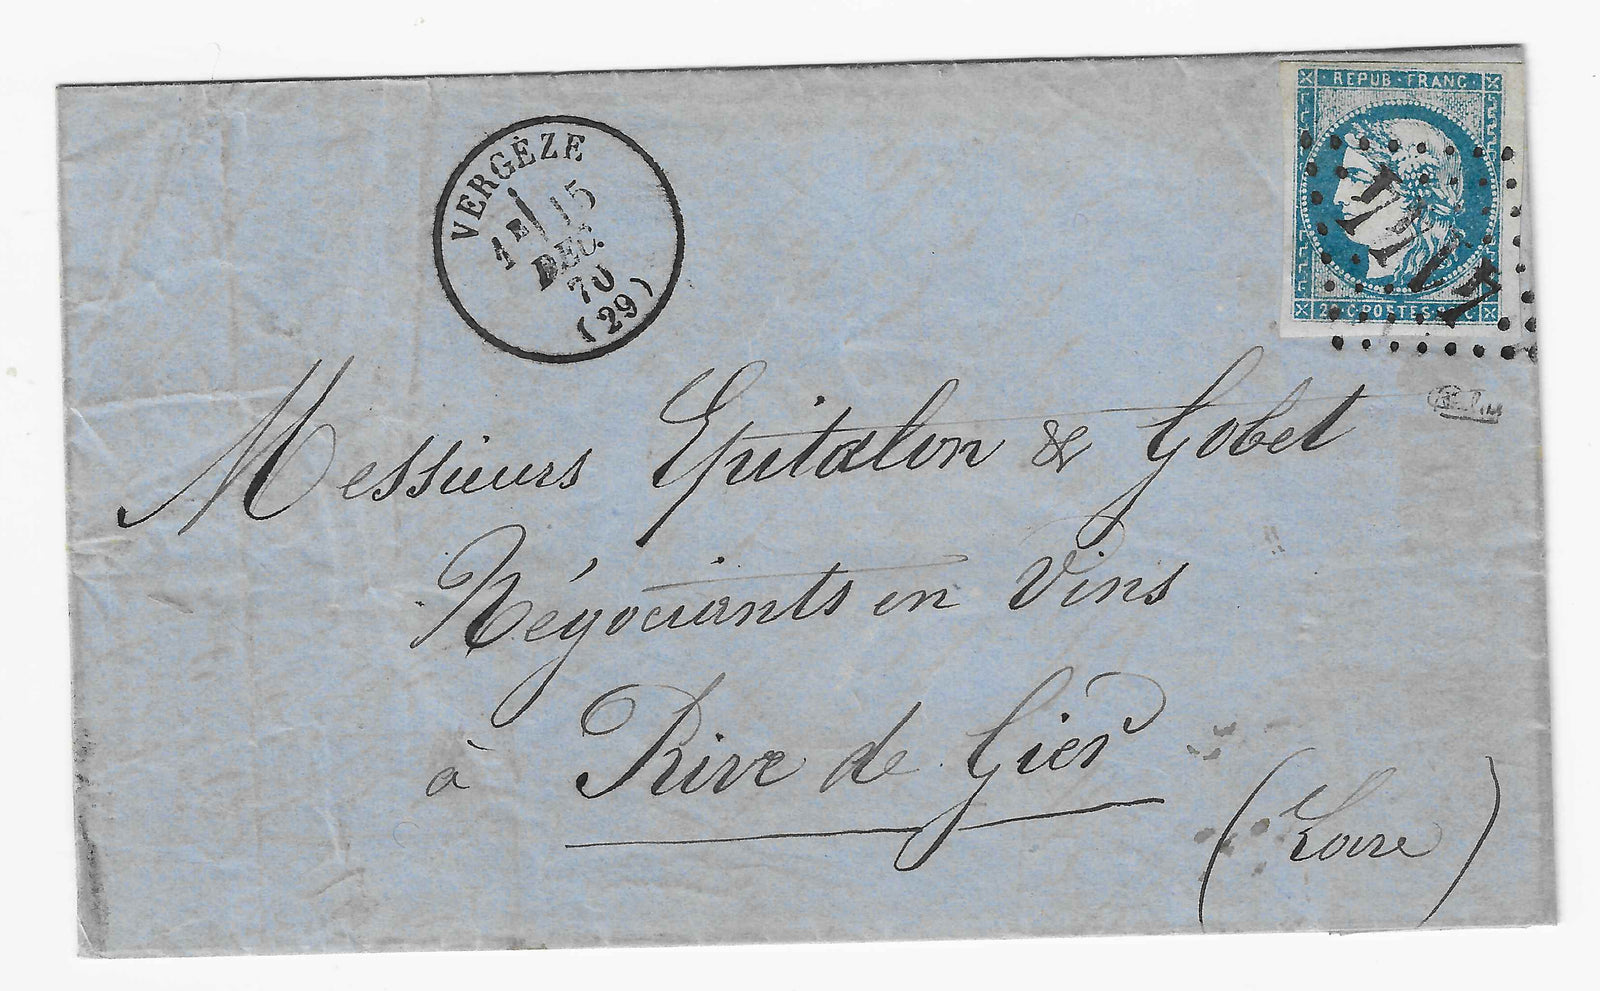 VERGÈZE
1E/ 15
DEC.
70
(29)
REPUB·FRANC
2 C POSTES C
Messieurs Epitalon & Gobet
Négociants en Vins
à Rive de Gier
(Loire)